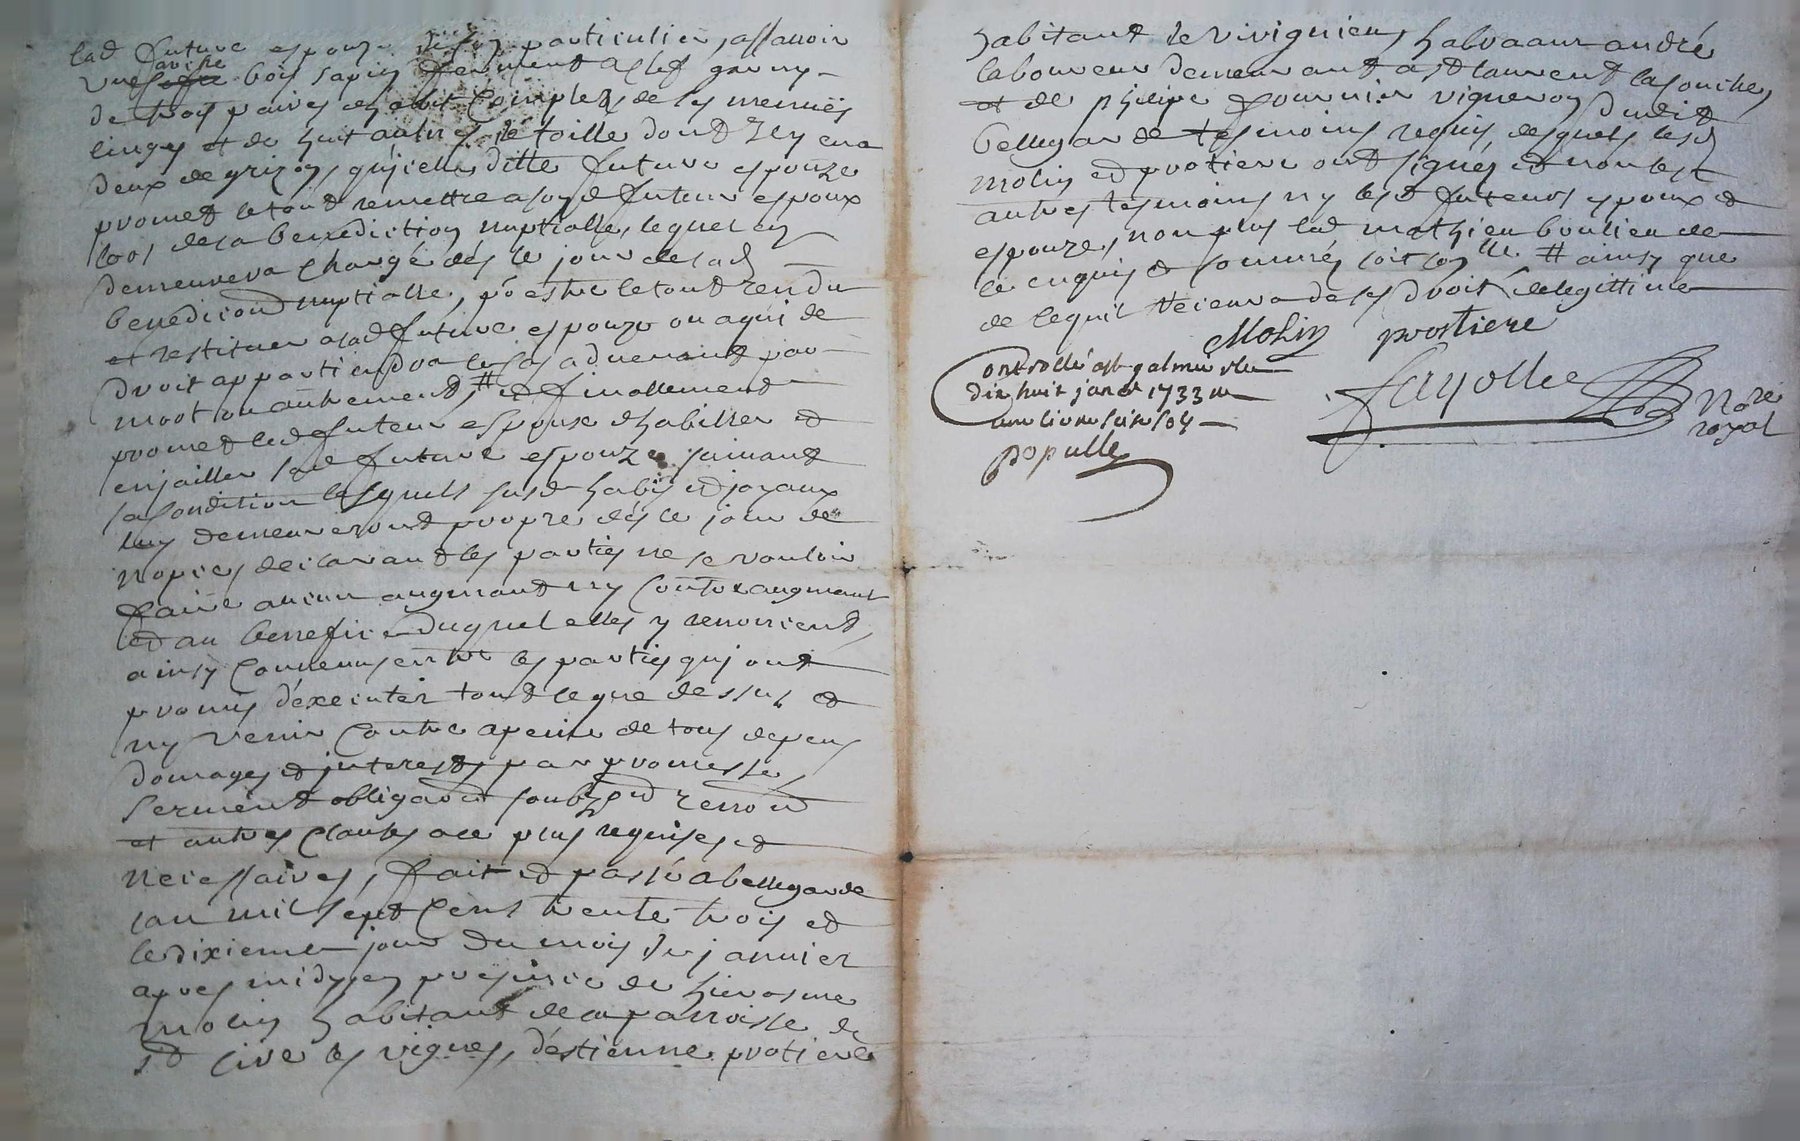 lad future espouze de son particulier, assavoir
une arche bois sapin fermant a clef garny
de trois paires habit complets, de ses menües
linges et de huit autres de toille dont il y en a
deux de grizon, qu'icelle ditte future espouze
promet le tout remettre a sond futeur espoux
lors de sa benediction nuptialle, lequel en
demeurera chargé dés le jour de lad
benediction nuptialle, po estre le tout rendu
et restituer a lad future espouze ou a qui de
droit appartiendra le cas advenant par
mort ou autrement, # et finallement
promet led futeur espouse d'habiller et
enjailler lad future espouze suivant
sa condition lesquels susd habis et joyaux
luy demeureront propre dés le jour de
nopces declarant les parties ne se vouloir
faire aucun augmant ny contre augmant
et au benefice duquel elles y renoncent,
ainsy convenus entre les parties qui ont
promis d'éxecuter tout ce que dessus et
ny venir contre a peine de tous depens
domages et interests par promesse,
serment obligaon soubz on renon
et autres clauses a ce plus requises et
necessaires, fait et passé a bellegarde
lan mil sept cens trente trois et
le dixieme jour du mois de janvier
apres midy en presence de hierosme
molin habitant de la parroisse de
st cire les vignes, d'éstienne protiere
habitant le vivignieu, andré
laboureur demeurant a st laurent la conche,
et de philipe fournier vigneron dudit
bellegarde tesmoins requis desquels lesd
molin et protiere ont signés et non les
autres tesmoins ny lesd futeurs espoux et
espouze, non plus led mathieu boulieu de
ce enquis et sommés soit con lle # ainsy que
de ce qu'il recevra de ses droits de legittime
Molin protiere
Controllé a st galmier le
dix huit janer 1733 
populle
fayolle Nore
royal